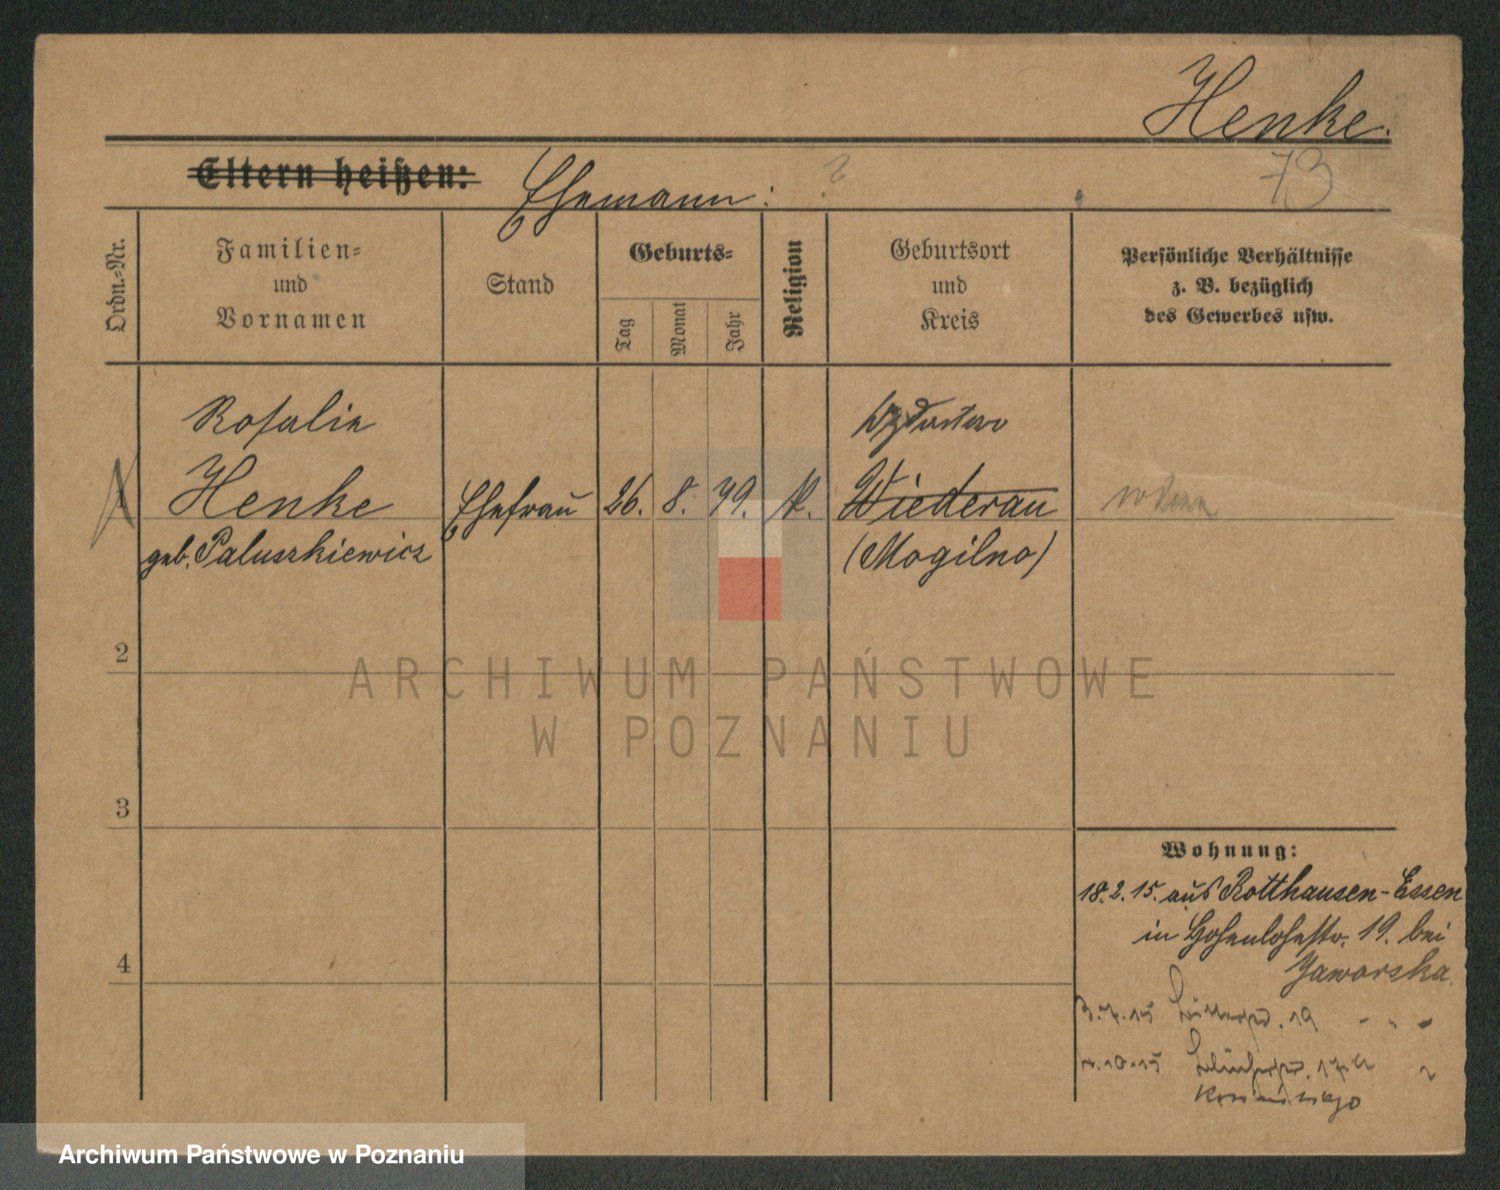 Henke.
Eltern heißen: Ehemann: ?
73
Ordn.-Nr.
Familien-
und
Vornamen
Stand
Geburts-
Tag
Monat
Jahr
Religion
Geburtsort
und
Kreis
Persönliche Verhältnisse
z. B. bezüglich
des Gewerbes usw.
Rosalie
1 Henke Ehefrau 26. 8. 79. k. Wiederau
geb. Paluszkiewicz (Mogilno)
2
3
4
Wohnung:
18.2.15. aus Rotthausen-Essen
in Hohenlohestr. 19. bei
Jaworska.
3.7.15 19 " " "
4.10.15
ARCHIWUM PAŃSTWOWE
W POZNANIU
Archiwum Państwowe w Poznaniu